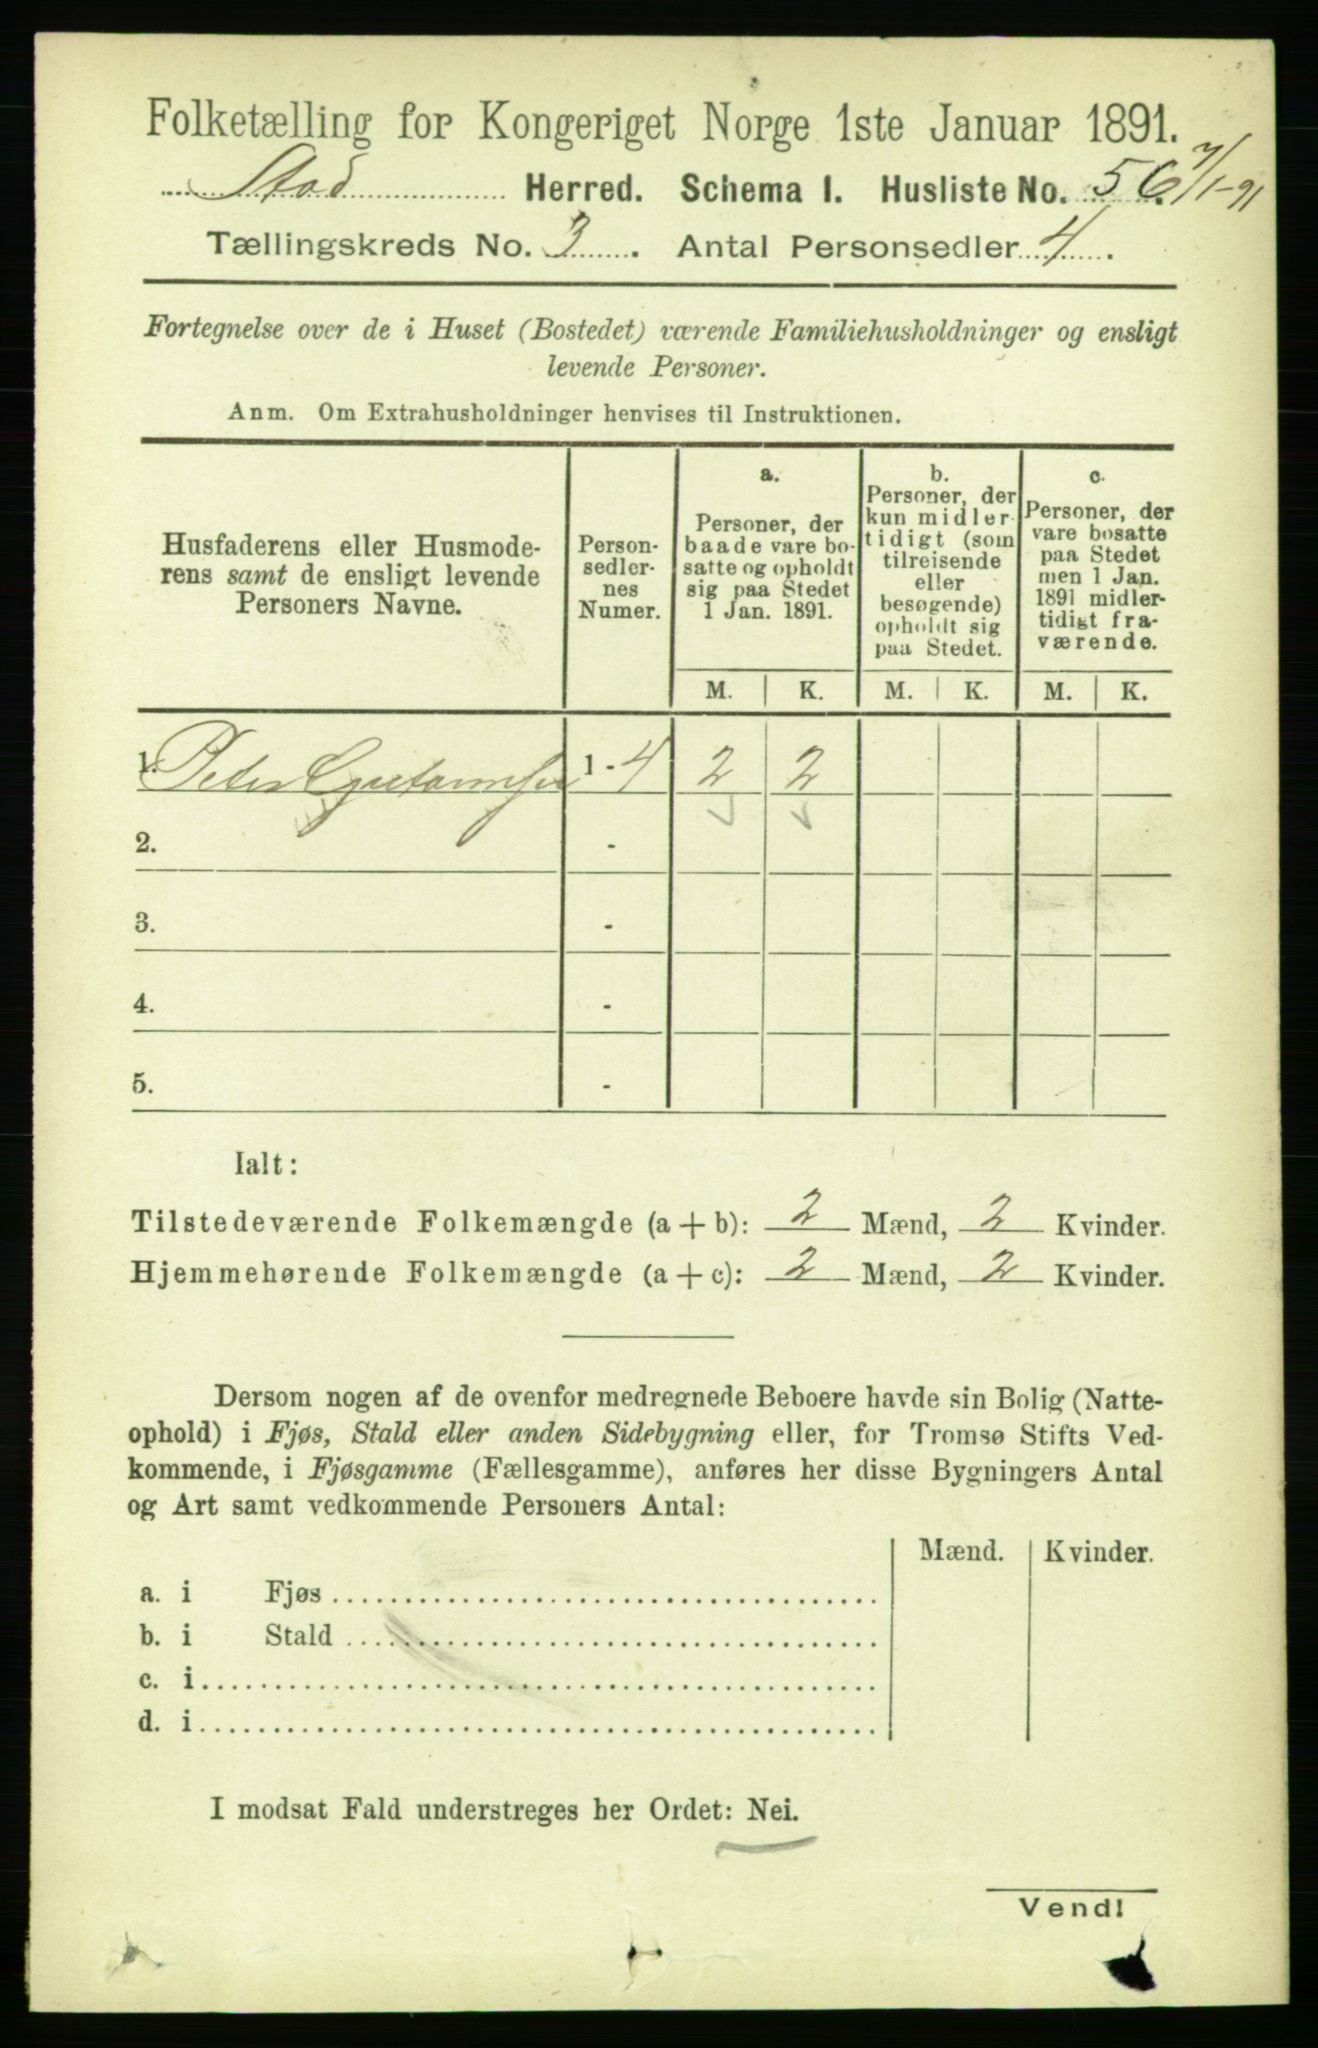 Folketælling for Kongeriget Norge 1ste Januar 1891.
Stod Herred. Schema 1. Husliste No. 56. 7/1-91
Tællingskreds No. 3. Antal Personsedler 4.
Fortegnelse over de i Huset (Bostedet) værende Familiehusholdninger og ensligt
levende Personer.
Anm. Om Extrahusholdninger henvises til Instruktionen.
Husfaderens eller Husmode-
rens samt de ensligt levende
Personers Navne.
Person-
sedler-
nes
Numer.
a.
Personer, der
baade vare bo-
satte og opholdt
sig paa Stedet
1 Jan. 1891.
b.
Personer, der
kun midler-
tidigt (som
tilreisende
eller
besøgende)
opholdt sig
paa Stedet.
c.
Personer, der
vare bosatte
paa Stedet
men 1 Jan.
1891 midler-
tidigt fra-
værende.
M. K. M. K. M. K.
1. Peter Gustavsen 1 - 4 2 2
2. -
3. -
4. -
5. -
Ialt:
Tilstedeværende Folkemængde (a + b): 2 Mænd, 2 Kvinder.
Hjemmehørende Folkemængde (a + c): 2 Mænd, 2 Kvinder.
Dersom nogen af de ovenfor medregnede Beboere havde sin Bolig (Natte-
ophold) i Fjøs, Stald eller anden Sidebygning eller, for Tromsø Stifts Ved-
kommende, i Fjøsgamme (Fællesgamme), anføres her disse Bygningers Antal
og Art samt vedkommende Personers Antal:
Mænd. Kvinder.
a. i Fjøs
b. i Stald
c. i
d. i
I modsat Fald understreges her Ordet: Nei.
Vend!